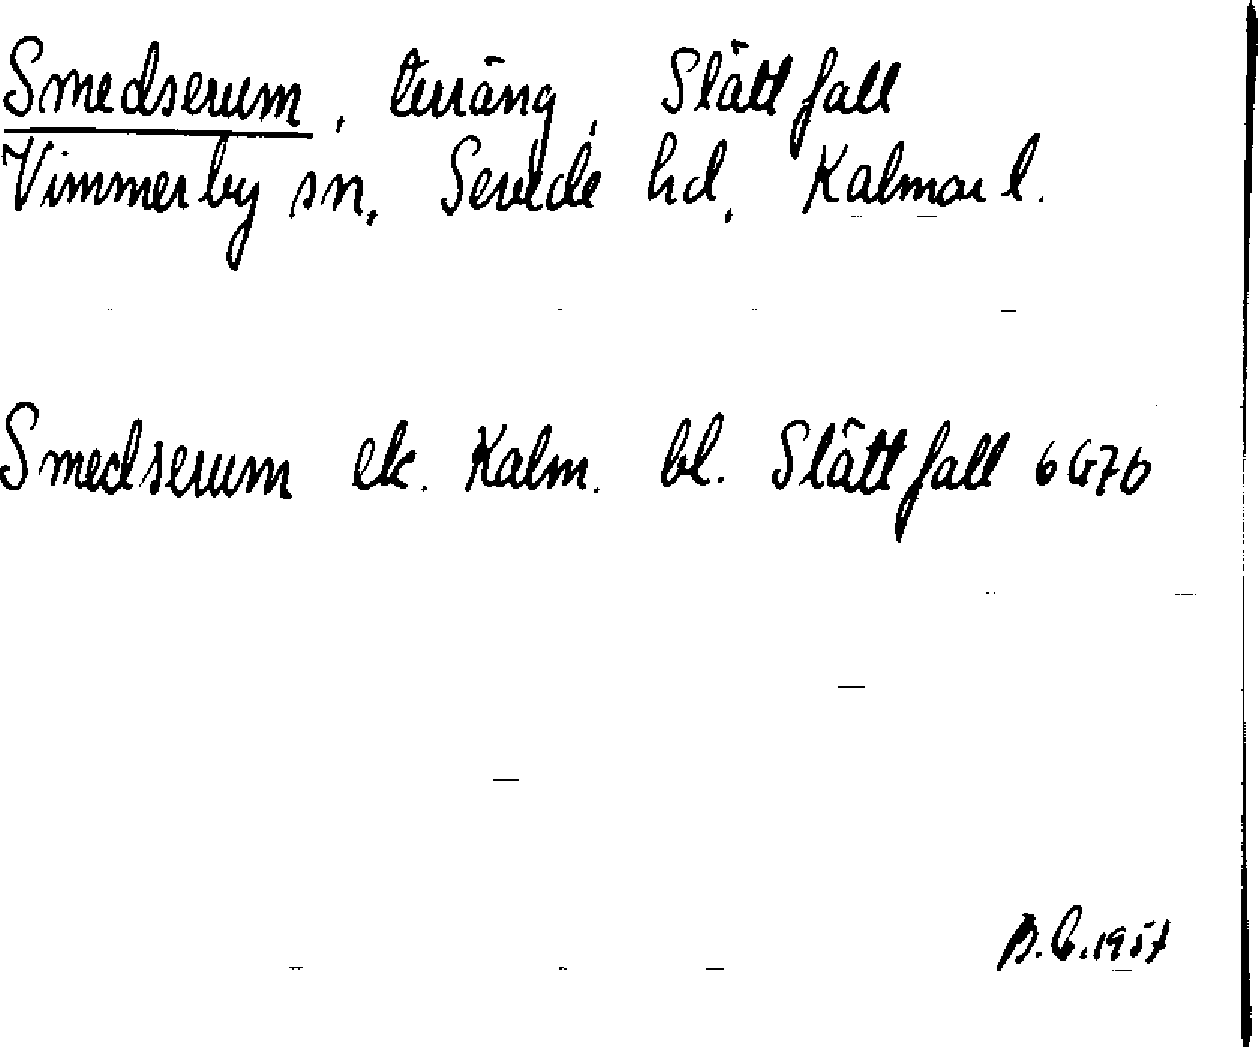 Smedserum, terräng, Slätt fall
Vimmerby sn, Sevede hd, Kalmar l.
Smedserum ek. Kalm. bl. Slätt fall 6G7b
B.C. 1957